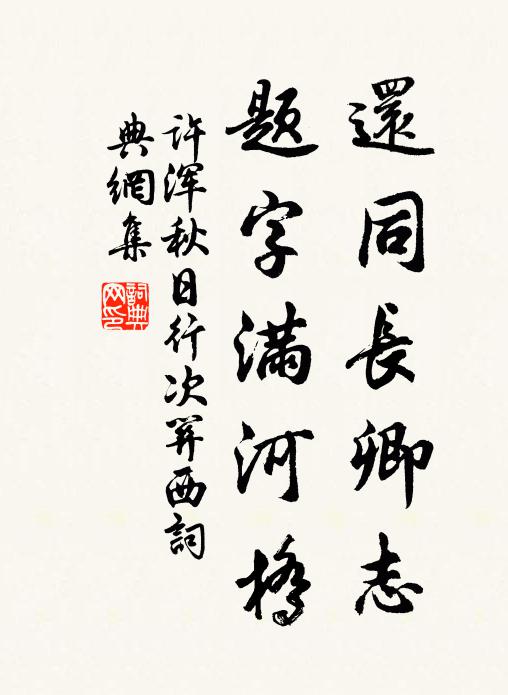 還同長卿志
題字滿河橋
許渾秋日行次關西詞
典網集
詞典
网印